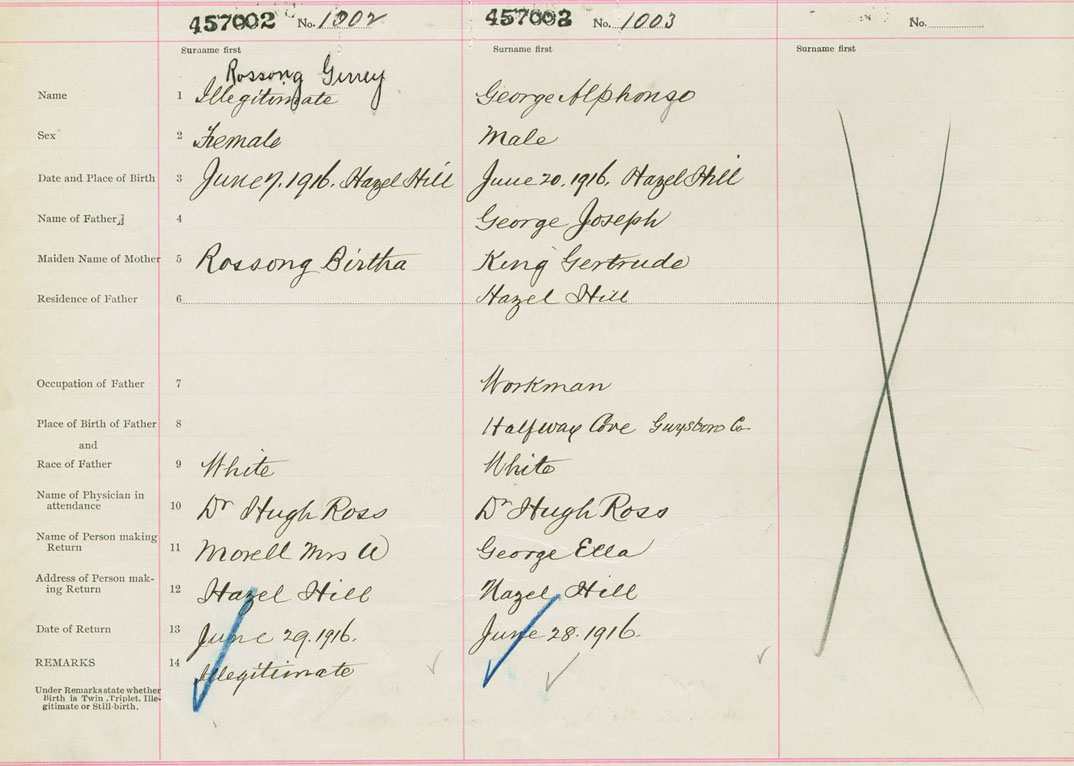 457002 No. 1002 457003 No. 1003 No.
Surname first Surname first Surname first
Rossong
Name 1 Illegitimate George Alphonso
Sex 2 Female Male
Date and Place of Birth 3 June 7. 1916. Hazel Hill June 20. 1916. Hazel Hill
Name of Father 4 George Joseph
Maiden Name of Mother 5 Rossong Birtha King Gertrude
Residence of Father 6 Hazel Hill
Occupation of Father 7 Workman
Place of Birth of Father 8 Halfway Cove Guysboro Co
and
Race of Father 9 White White
Name of Physician in
attendance 10 Dr Hugh Ross Dr Hugh Ross
Name of Person making
Return 11 Morell Mrs W George Ella
Address of Person mak-
ing Return 12 Hazel Hill Hazel Hill
Date of Return 13 June 29. 1916. June 28. 1916.
REMARKS 14 Illegitimate
Under Remarks state whether
Birth is Twin, Triplet, Ille-
gitimate or Still-birth.